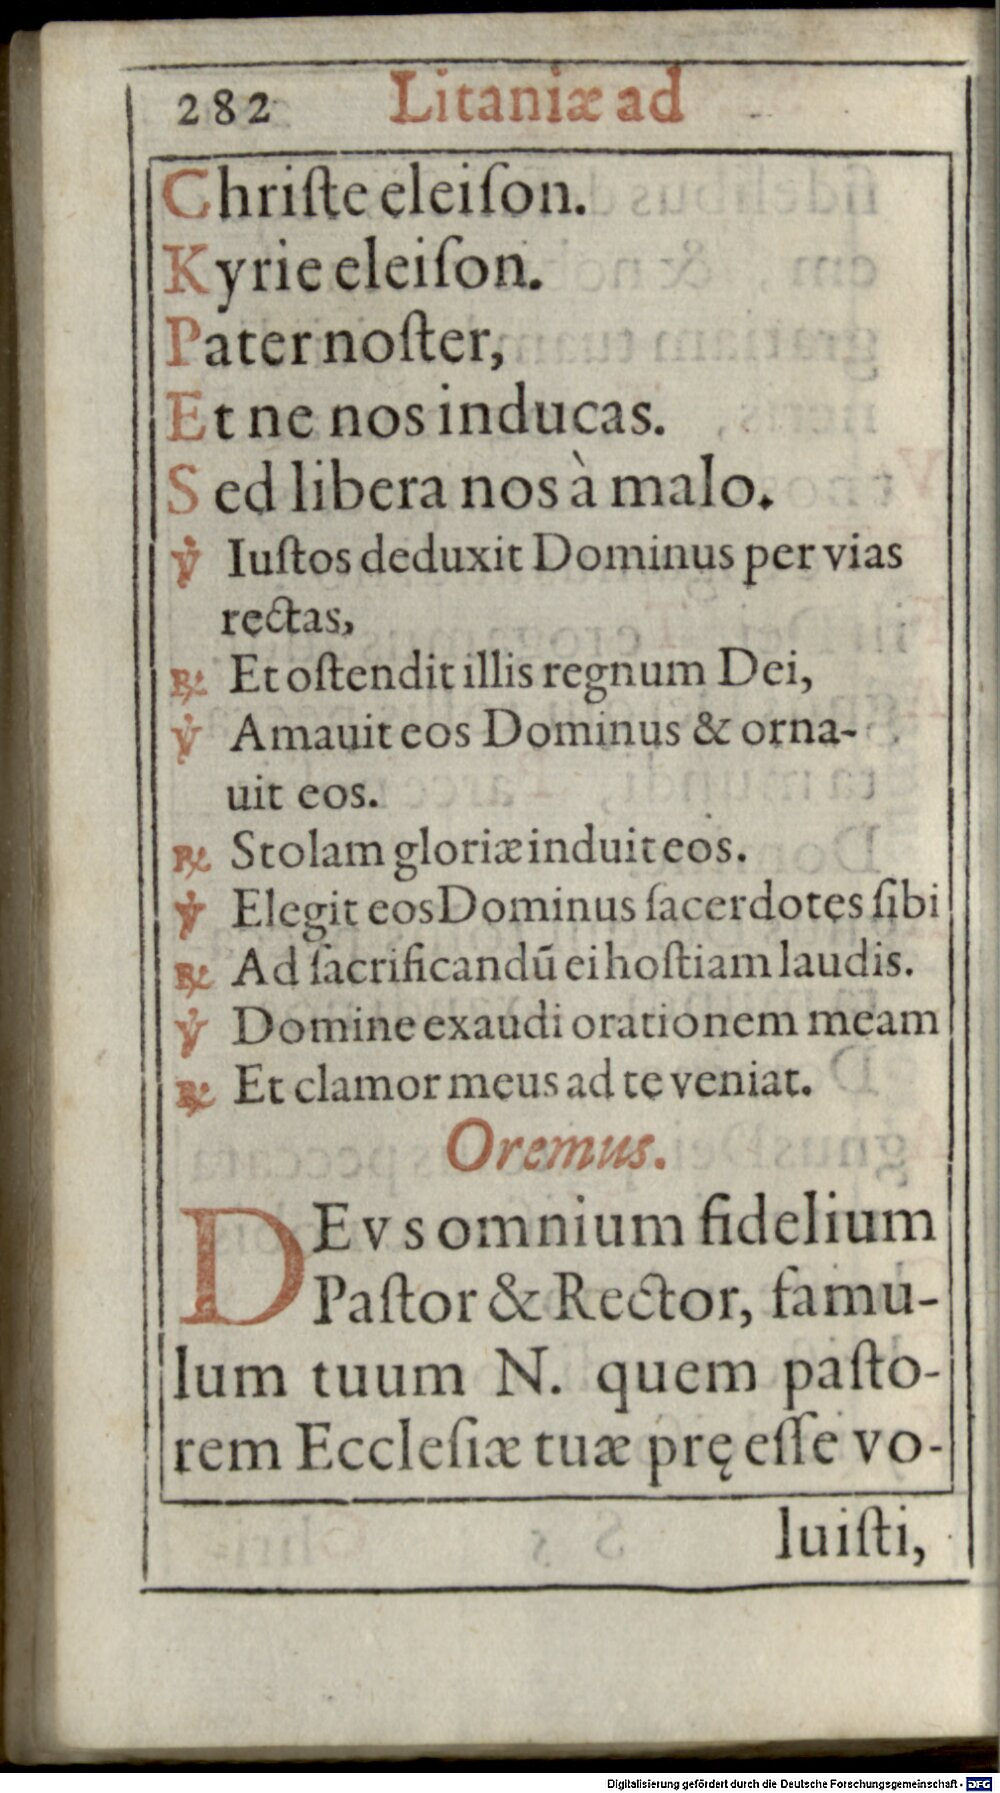 282 Litaniæ ad
Chriſte eleiſon.
Kyrie eleiſon.
Pater noſter,
Et ne nos inducas.
Sed libera nos à malo.
℣ Iuſtos deduxit Dominus per vias
rectas,
℟ Et oſtendit illis regnum Dei,
℣ Amauit eos Dominus & orna-
uit eos.
℟ Stolam gloriæ induit eos.
℣ Elegit eos Dominus ſacerdotes ſibi
℟ Ad ſacrificandū ei hoſtiam laudis.
℣ Domine exaudi orationem meam
℟ Et clamor meus ad te veniat.
Oremus.
DEvs omnium fidelium
Paſtor & Rector, famu-
lum tuum N. quem paſto-
rem Eccleſiæ tuæ pręeſſe vo-
luiſti,
Digitalisierung gefördert durch die Deutsche Forschungsgemeinschaft - DFG